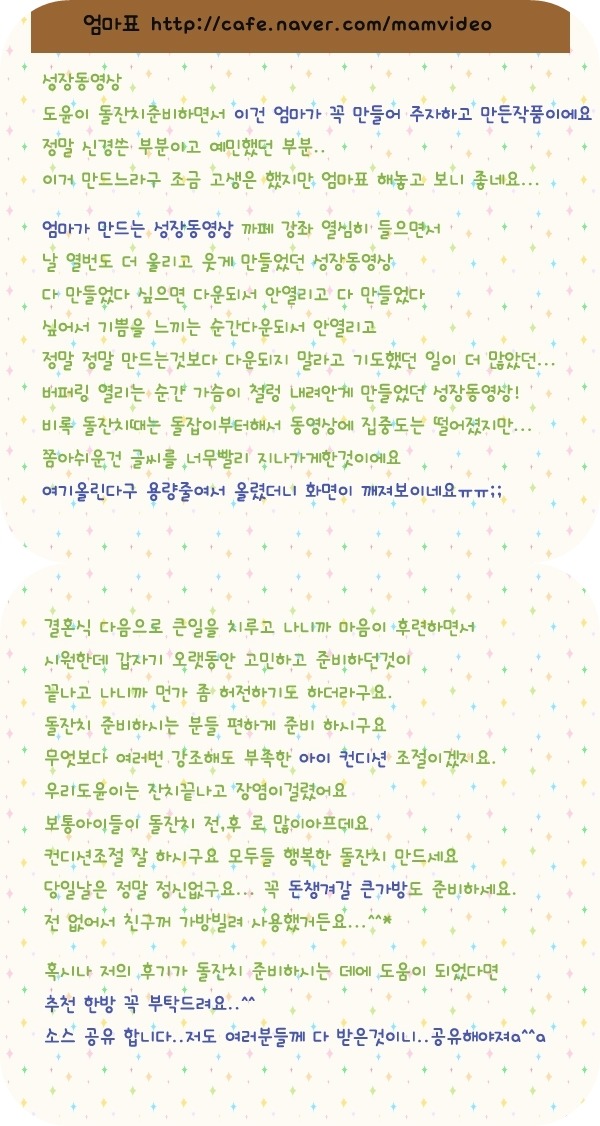 엄마표 http://cafe.naver.com/mamvideo
성장동영상
도윤이 돌잔치준비하면서 이건 엄마가 꼭 만들어 주자하고 만든작품이에요
정말 신경쓴 부분이고 예민했던 부분..
이거 만드느라구 조금 고생은 했지만 엄마표 해놓고 보니 좋네요...
엄마가 만드는 성장동영상 까페 강좌 열심히 들으면서
날 열번도 더 울리고 웃게 만들었던 성장동영상
다 만들었다 싶으면 다운되서 안열리고 다 만들었다
싶어서 기쁨을 느끼는 순간다운되서 안열리고
정말 정말 만드는것보다 다운되지 말라고 기도했던 일이 더 많았던...
버퍼링 열리는 순간 가슴이 철렁 내려안게 만들었던 성장동영상!
비록 돌잔치때는 돌잡이부터해서 동영상에 집중도는 떨어졌지만...
쫌아쉬운건 글씨를 너무빨리 지나가게한것이에요
여기올린다구 용량줄여서 올렸더니 화면이 깨져보이네요ㅠㅠ;;
결혼식 다음으로 큰일을 치루고 나니까 마음이 후련하면서
시원한데 갑자기 오랫동안 고민하고 준비하던것이
끝나고 나니까 먼가 좀 허전하기도 하더라구요.
돌잔치 준비하시는 분들 편하게 준비 하시구요
무엇보다 여러번 강조해도 부족한 아이 컨디션 조절이겠지요.
우리도윤이는 잔치끝나고 장염이걸렸어요
보통아이들이 돌잔치 전,후 로 많이아프데요
컨디션조절 잘 하시구요 모두들 행복한 돌잔치 만드세요
당일날은 정말 정신없구요... 꼭 돈챙겨갈 큰가방도 준비하세요.
전 없어서 친구꺼 가방빌려 사용했거든요...^^*
혹시나 저의 후기가 돌잔치 준비하시는 데에 도움이 되었다면
추천 한방 꼭 부탁드려요..^^
소스 공유 합니다..저도 여러분들께 다 받은것이니..공유해야져a^^a